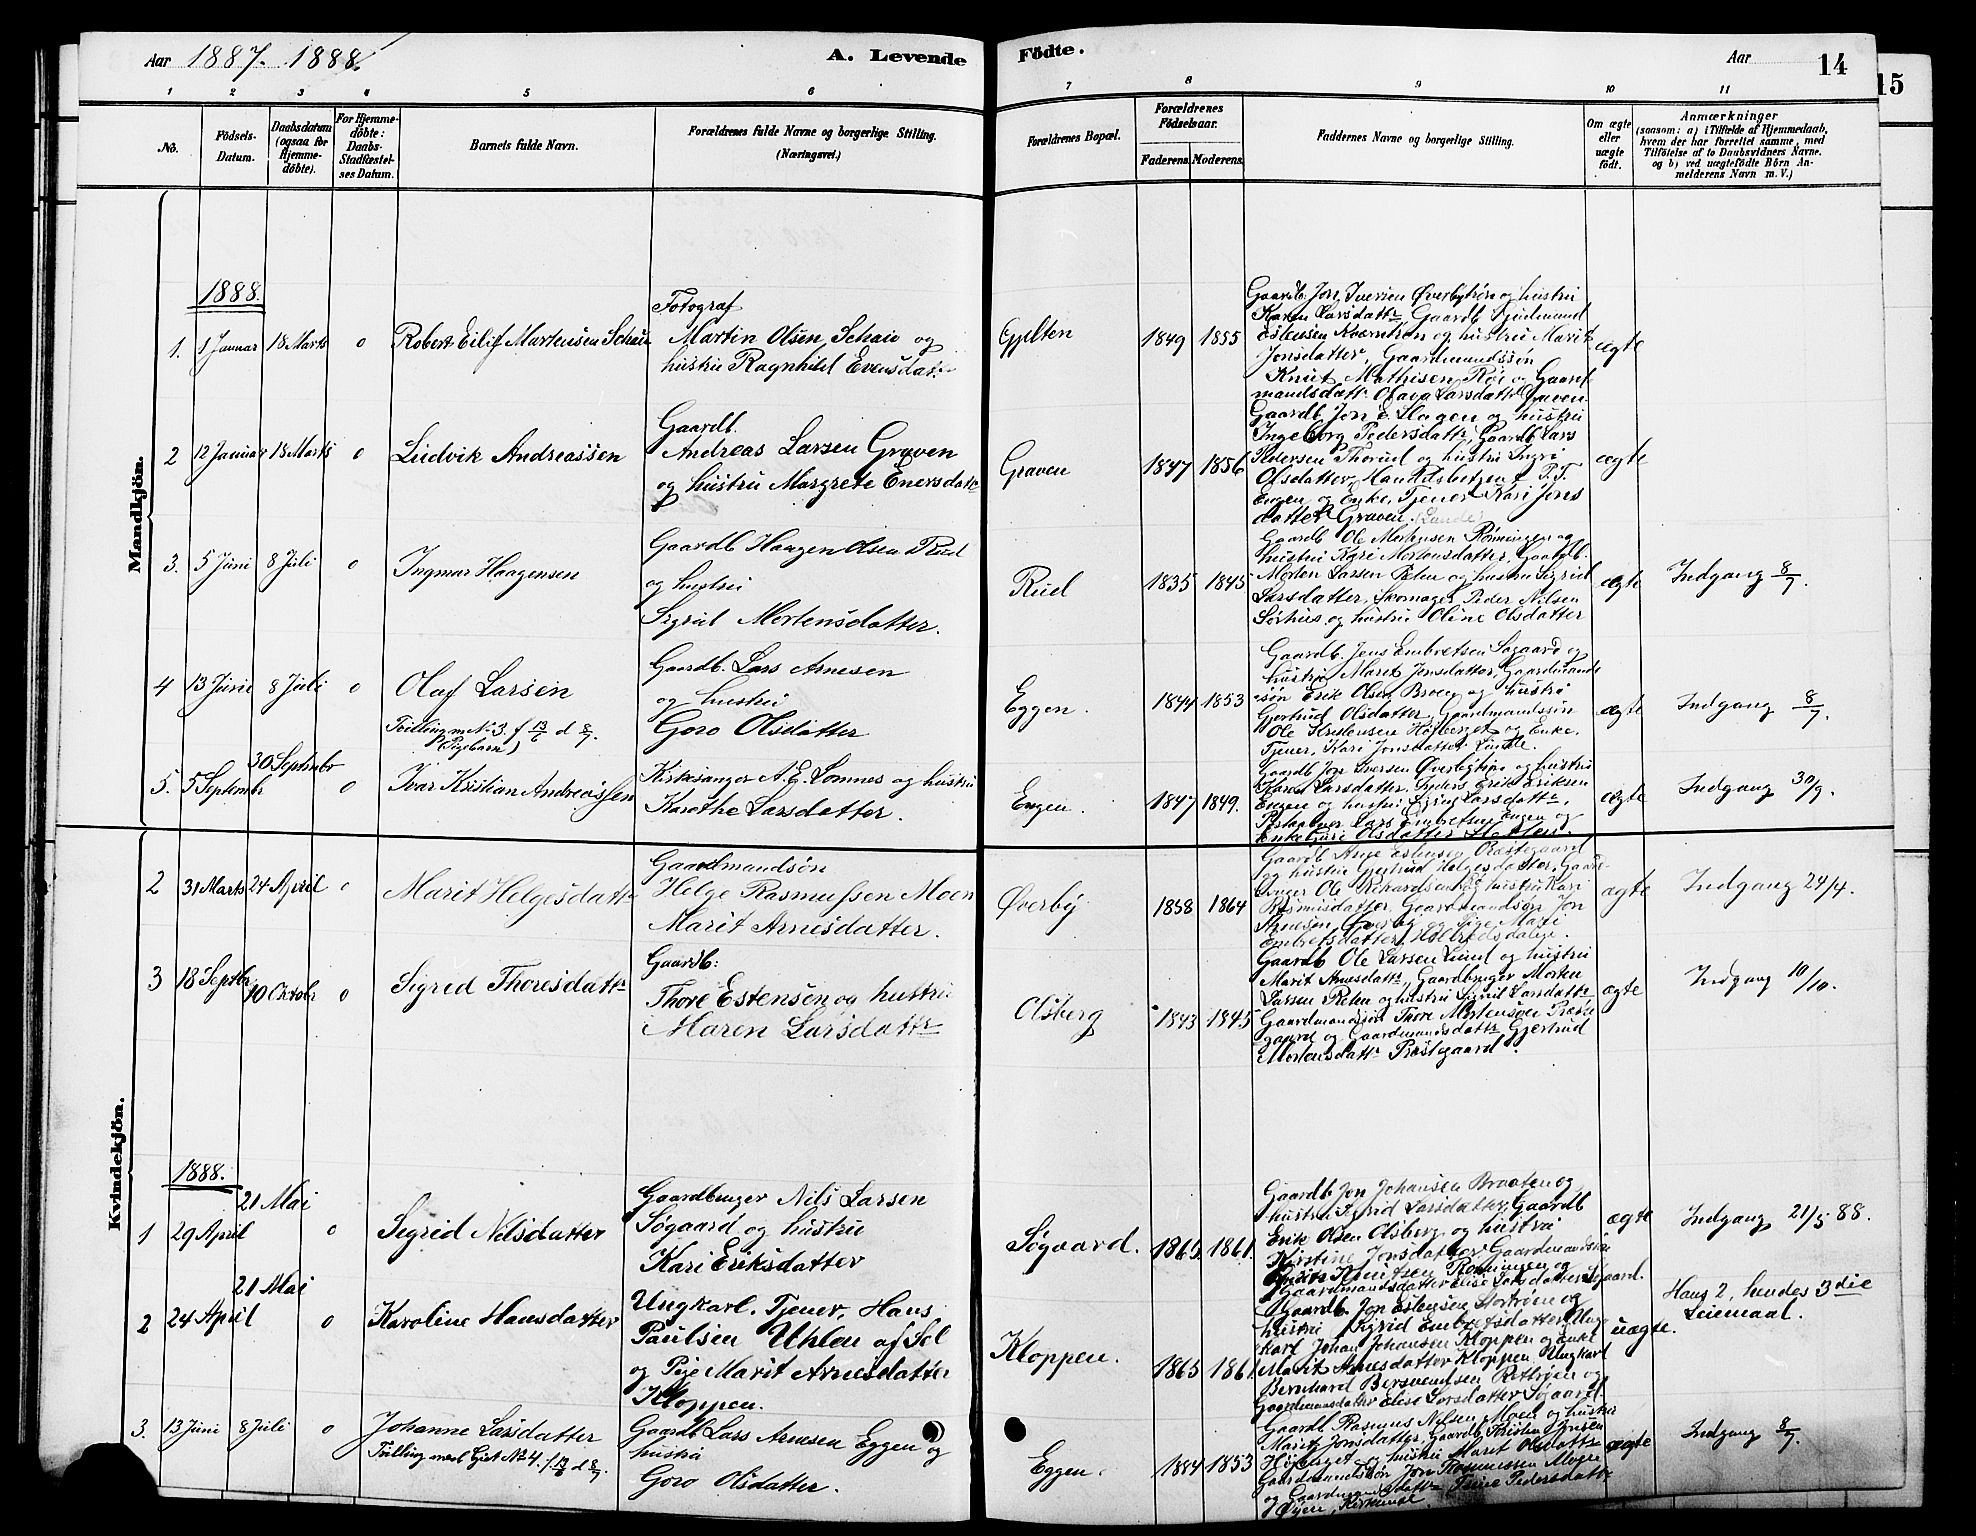 Aar 1887. 1888.
A. Levende
Födte.
Aar
14
15
1
2
3
4
5
6
7
8
9
10
11
No.
Födsels-
Datum.
Daabsdatum
(ogsaa for
Hjemme-
döbte).
For Hjemme-
döbte:
Daabs-
Stadfæstel-
ses Datum.
Barnets fulde Navn.
Forældrenes fulde Navne og borgerlige Stilling.
(Næringsvei.)
Forældrenes Bopæl.
Forældrenes
Födselsaar.
Faderens.
Moderens.
Faddernes Navne og borgerlige Stilling.
Om ægte
eller
uægte
födt.
Anmærkninger
(saasom: a) i Tilfælde af Hjemmedaab,
hvem der har forrettet samme, med
Tilföielse af to Daabsvidners Navne.
og b) ved uægtefödte Börn An-
melderens Navn m. V.)
Mandkjön.
1888.
1. 1 Januar 18 Marts 0 Robert Eilif Martensen Schau
Fotograf
Martin Olsen Schau og
hustru Ragnhild Evensdatr
Gjelten 1849 1855
Gaardb. Jon Iversen Øverbytrøn og hustru
Karen Larsdattr Gaardb
Estensen og hustru Marit
Jonsdatter, Gaardmandssøn
Knut Mathisen Røe og Gaard
mandsdattr Olava Larsdatter Graven
ægte
2 12 Januar 18 Marts 0 Ludvik Andreassen
Gaardb.
Andreas Larsen Graven
og hustru Margrete Enersdattr
Graven 1847 1856
Gaardb. Jon E. Hagen og hustru
Ingeborg Pedersdattr, Gaardb. Lars
Pedersen Thorud og hustru Ingri
Olsdatter, P.T.
Engen og Enke, Tjener Kari Jons
datter Graven. (Lunde)
ægte
3. 5 Juni 8 Juli 0 Ingmar Haagensen
Gaardb Haagen Olsen Rud
og hustru
Sigrid Mortensdatter.
Rud 1835 1845
Gaardb Ole Mortensen Rønningen og
hustru Kari Mortensdatter, Gaardb.
Morten Larsen Reten og hustru Sigrid
Larsdatter, Skomager Peder Nilsen
Sørhus og hustru Oline Olsdatter
ægte Indgang 8/7.
4 13 Juni 8 Juli 0 Olaf Larsen
Tvilling m No 3. f 13/6 d 8/7.
(Pigebarn)
Gaardb. Lars Arnesen
og hustru
Goro Olsdatter
Eggen. 1844 1853
Gaardb. Jens Embretsen Søgaard og
hustru Marit Jonsdatter, Gaardmands
søn Erik Olsen Broen og hustru
Gjertrud Olsdatter, Gaardmandssøn
Ole Kristensen Høiberget og Enke,
Tjener, Kari Jonsdatter Lunde.
ægte Indgang 8/7.
5. 5 Septembr 30 Septembr 0 Ivar Kristian Andreassen
Kirkesanger A. E. Lomnes og hustru
Karothe Larsdatter.
Engen. 1847 1849.
Gaardb Jon Iversen Øverbytrøn og hustru
Karen Larsdatter, Erik Eriksen
Engen og hustru Larsdattr,
Lars Embretsen Engen og
Enke Guri Olsdatter
ægte Indgang 30/9.
Kvindekjön.
2 31 Marts 24 April 0 Marit Helgesdattr
Gaardmandsøn
Helge Rasmussen Moen
Marit Arnesdatter.
Øverby 1858 1864
Gaardb Arne Estensen Præstegaard
og hustru Gjertrud Helgesdatter, Gaard-
bruger Ole Rikardsen og hustru Kari
Rasmusdatter, Gaardmandsøn Jon
Arnesen Øverby og Pige Mari
Embretsdatter
ægte Indgang 24/4.
3 18 Septbr 10 Oktobr 0 Sigrid Thoresdattr
Gaardb:
Thore Estensen og hustru
Maren Larsdattr
Olsberg 1843 1845
Gaardb Ole Larsen Lund og hustru
Marit Arnesdattr, Gaardbruger Morten
Larsen Reten og hustru Sigrid Larsdattr
Gaardmandssøn Thore Mortensøn Præste
gaard og Gaardmandsdattr Gjertrud
Mortensdattr Præstegaard.
ægte Indgang 10/10.
1888.
1 29 April 21 Mai 0 Sigrid Nilsdatter
Gaardbruger Nils Larsen
Søgaard og hustru
Kari Eriksdatter
Søgaard. 1865 1861.
Gaardb Jon Johansen Braaten og
hustru Sigrid Larsdatter, Gaardb
Erik Olsen Olsberg og hustru
Kirstine Jonsdatter, Gaardmandssøn
Knutsen Rønningen og
Gaardmandsdatter Elise Larsdatter Søgaard.
ægte Indgang 21/5 88.
2 24 April 21 Mai 0 Karoline Hansdatter
Ungkarl. Tjener, Hans
Paulsen Uhlen af Sel
og Pige Marit Arnesdatter
Kloppen.
Kloppen. 1865 1861
Gaardb. Jon Estensen Stortrøen og
hustru Sigrid Embretsdatter, Ung
karl Johan Johansen Kloppen og Enke
Marit Arnesdatter Kloppen, Ungkarl
Bernhard Bersvendsen Rettrøen og
Gaardmandsdatter Elise Larsdatter Søgaard.
uægte. Hans 2, hendes 3die
Leiemaal.
3. 13 Juni 8 Juli 0 Johanne Larsdatter
Tvilling med Gut No 4. f 13/6 d 8/7
Gaardb Lars Arnesen Eggen og
hustru
Goro Olsdatter.
Eggen. 1884 1853
Gaardb Rasmus Nilsen Moen og hustru
Marit Jonsdatter, Gaardb Kristen Jonsen
Høiberget og hustru Marit Olsdattr
Gaardmandssøn Jon Rasmussen Moen
og Gaardmandsdattr Trine Pedersdatter
Øyen,
ægte Indgang 8/7.